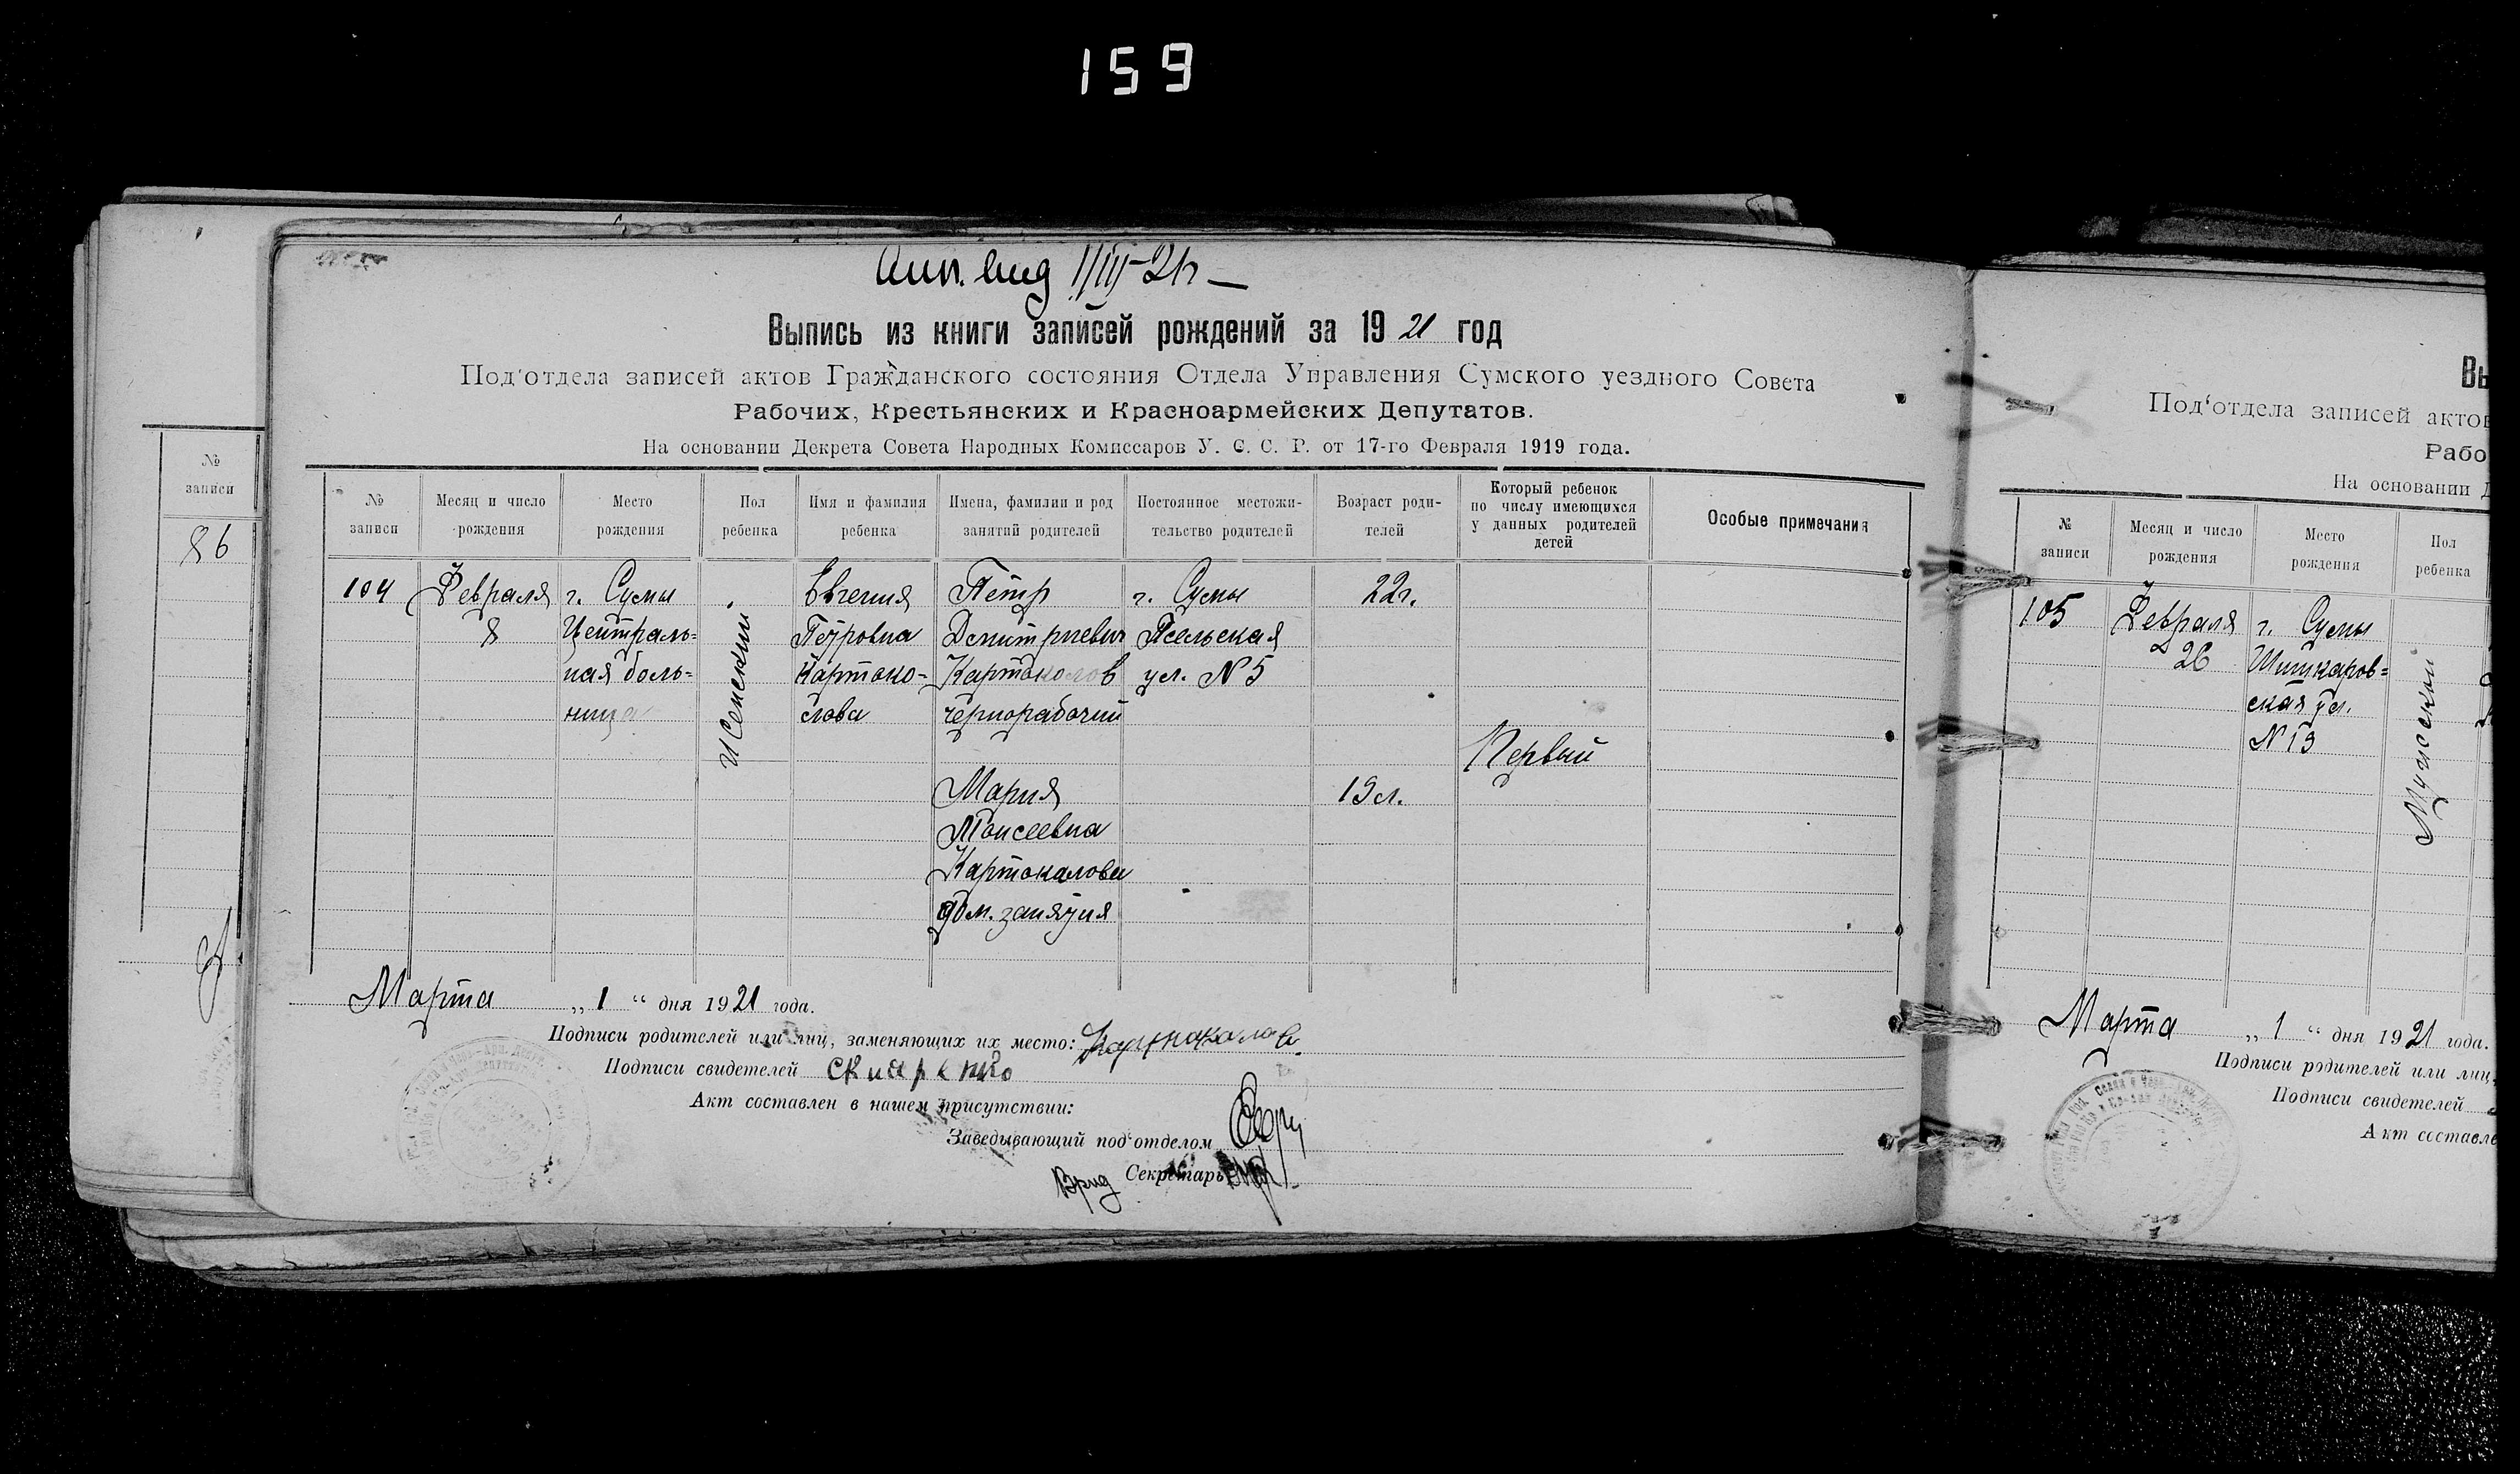 159
1/III-21г
Выпись из книги записей рождений за 1921 год
Под'отдела записей актов Гражданского состояния Отдела Управления Сумского уездного Совета
Рабочих, Крестьянских и Красноармейских Депутатов.
На основании Декрета Совета Народных Комиссаров У. С. С. Р. от 17-го Февраля 1919 года.
№ записи
Месяц и число рождения
Место рождения
Пол ребенка
Имя и фамилия ребенка
Имена, фамилии и род занятий родителей
Постоянное местожительство родителей
Возраст родителей
Который ребенок по числу имеющихся у данных родителей детей
Особые примечания
104
Февраля
8
г. Сумы
Централь=
ная боль=
ница
Женский
Евгения
Петровна
Картоко-
лова
Петр
Дмитриевич
Картоколов
чернорабочий
Мария
Моисеевна
Картокалова
дом. занятия
г. Сумы
Псельская
ул. N 5
22г.
19л.
Первый
Марта „ 1 “ дня 1921 года.
Подписи родителей или лиц, заменяющих их место: Картокалов.
Подписи свидетелей
Акт составлен в нашем присутствии:
Заведывающий под'отделом
Врид Секретарь
№
записи
86
Вы
Под'отдела записей актов
Рабо
На основании Д
№ записи
Месяц и число рождения
Место рождения
Пол ребенка
105
Февраля
26
г. Сумы
Шишкаров=
ская ул.
N 19
Мужской
Марта „ 1 “ дня 1921 года.
Подписи родителей или лиц,
Подписи свидетелей
Акт составле